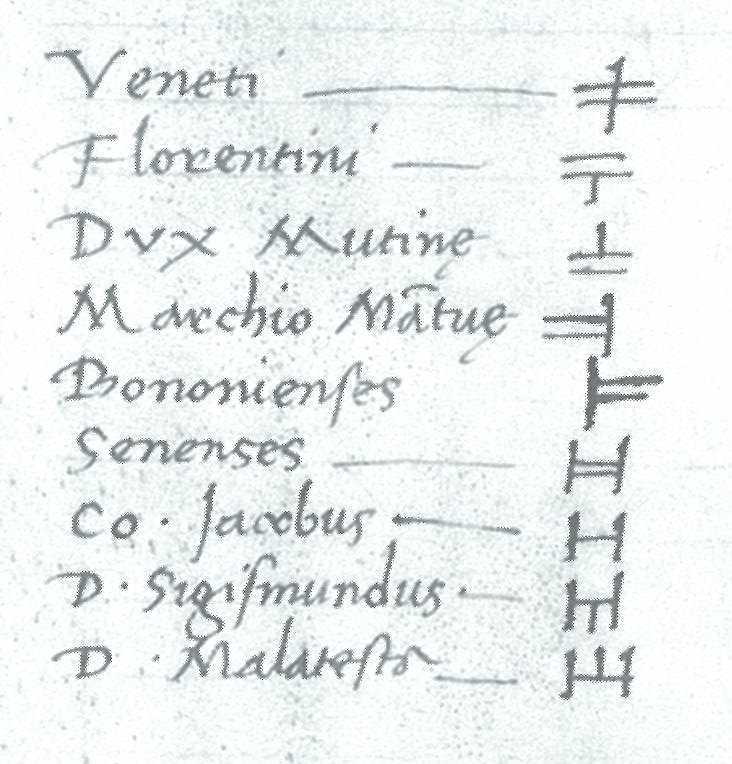 Veneti
Florentini
Dux Mutine
Marchio Mātue
Bononienses
Senenses
Co. Jacobus
D. Sigismundus.
D. Malatesta